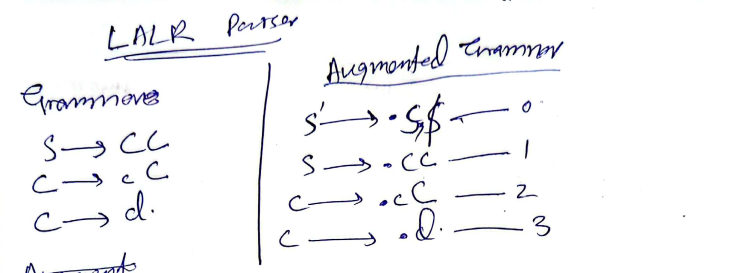 LALR Parser
Grammars
S → CC
C → cC
C → d.
Augmented Grammar
S' → •S,$ — 0
S → •CC — 1
C → •cC — 2
C → •d. — 3